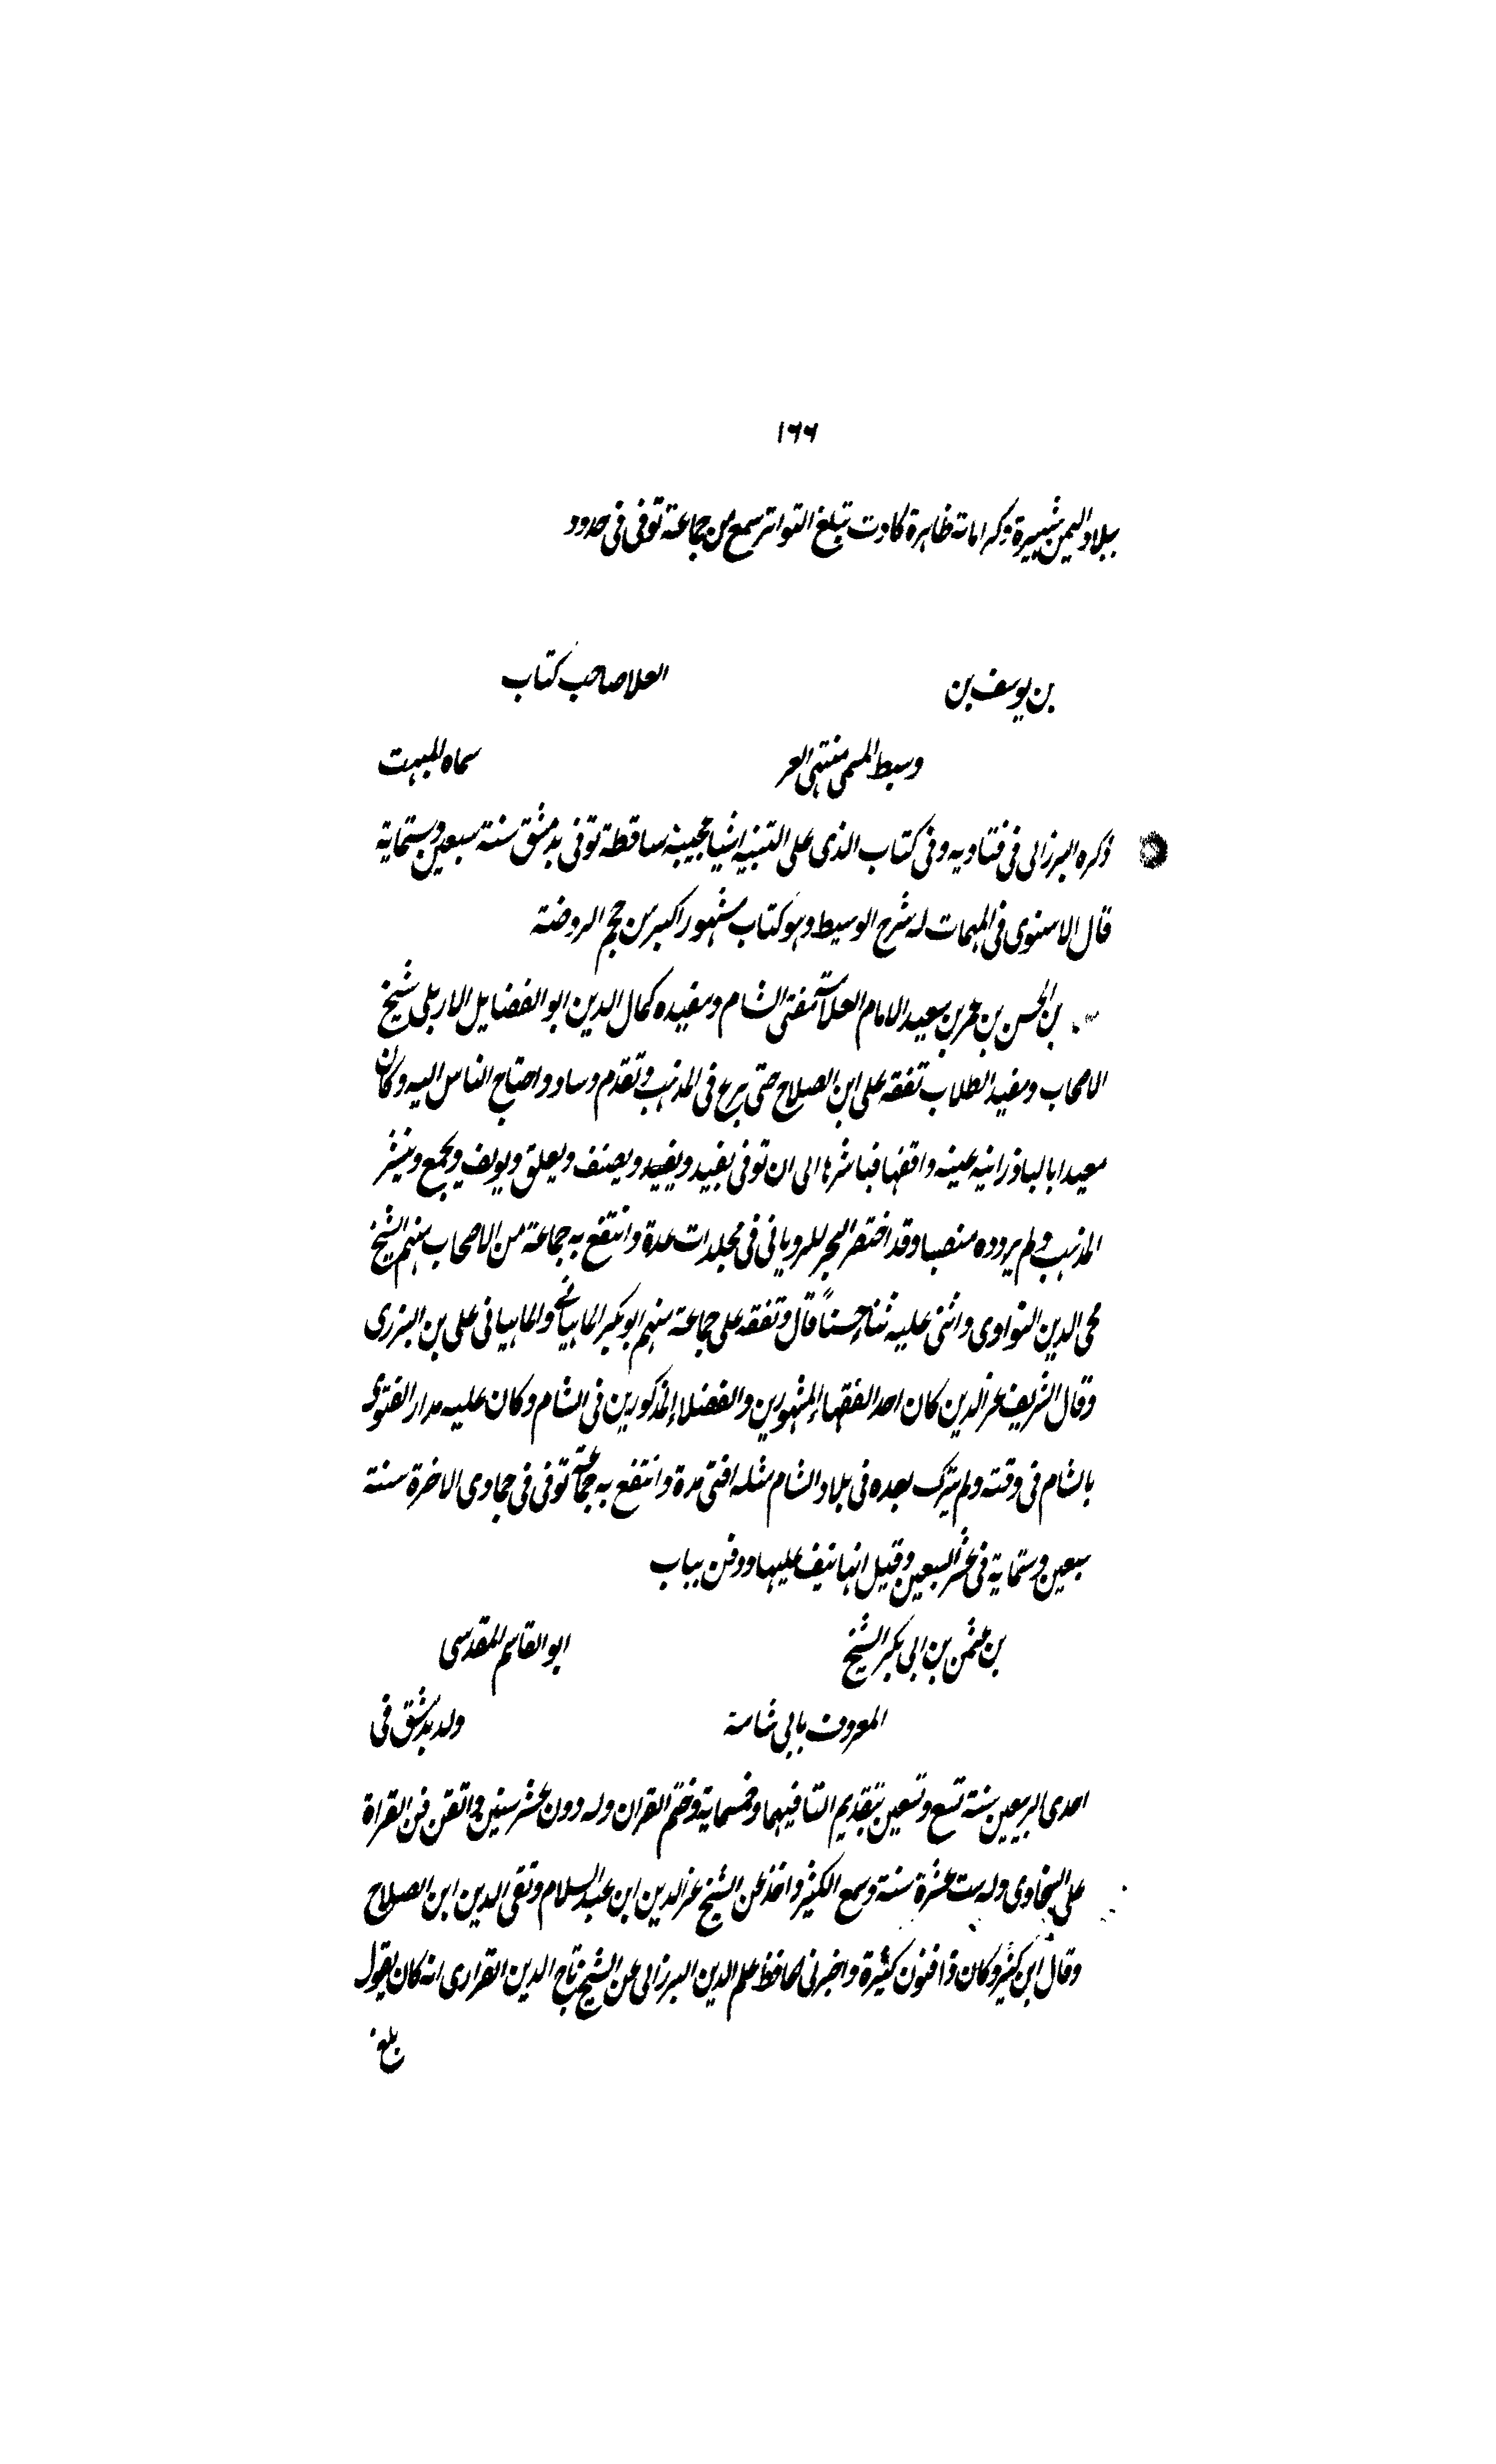 ١٦٦
ببلاد اليمن شهيرة وكراماته ظاهرة كادت تبلغ التواتر سمع من جماعة توفى فى حدود
بن يوسف بن العلا صاحب كتاب
وسيط المسمى منتهى العر سماه المبهت
ذكره البرزالى فى فتاويه وفى كتاب الذى على التنبيه اشيا عجيبة ساقطة توفى بدمشق سنة سبعين وستماية
قال الاسنوى فى المهمات له شرح الوسيط وهو كتاب مشهور اكبر من حجم الروضة
بن الحسن بن عمر بن سعيد الامام العلامة مفتى الشام ومفيده كمال الدين ابو الفضايل الاربلى شيخ
الاصحاب ومفيد الطلاب تفقه على ابن الصلاح حتى برع فى المذهب وتقدم وساد واحتاج الناس اليه وكان
معيدا بالباذرانية عينه واقفها فباشرها الى ان توفى يفيد ويفيد ويصنف ويعلق ويولف ويجمع وينشر
المذهب ولم يرد وده منصبا وقد اختصر البحر للرويانى فى مجلدات عدة وانتفع به جماعة من الاصحاب منهم الشيخ
محى الدين النواوى واثنى عليه ثناء حسناً قال وتفقه على جماعة منهم ابو بكر الماهيانى والماهيانى على بن البزرى
وقال الشريف عز الدين كان احد الفقهاء المشهورين والفضلاء المذكورين فى الشام وكان عليه مدار الفتوى
بالشام فى وقته ولم يترك بعده فى بلاد الشام مثله افتى مدة وانتفع به جماعة توفى فى جمادى الاخرة سنة
سبعين وستماية فى عشر السبعين وقيل انها نيف عليها ودفن بباب
بن عثمن بن ابى بكر الشيخ ابو القاسم المقدسى
المعروف بابى شامة ولد بدمشق فى
احدى الربيعين سنة تسع وتسعين بتقديم التا فيهما وخمسماية وختم القران وله دون عشر سنين واتقن فن القراة
على السخاوى وله ست عشرة سنة وسمع الكثير واخذ عن الشيخ عز الدين ابن عبد السلام وتقى الدين ابن الصلاح
وقال ابن كثير وكان ذا فنون كثيرة واخبرنى الحافظ علم الدين البرزالى عن الشيخ تاج الدين الفزارى انه كان يقول
بلغ